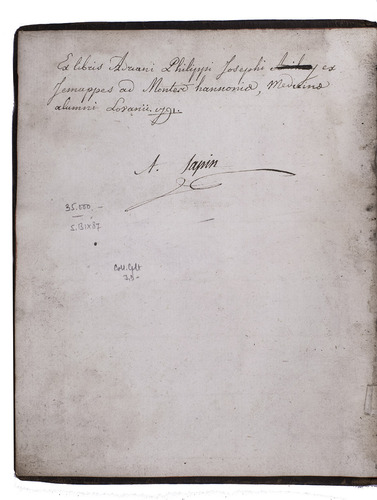 Ex libris Adriani Philippi Josephi ex
Jemappes ad Montes hannoniæ, Medicinæ
alumni Lovanii. 1791.
A. Sapin
35.000.-
S.BIX87
Coll. Cplt